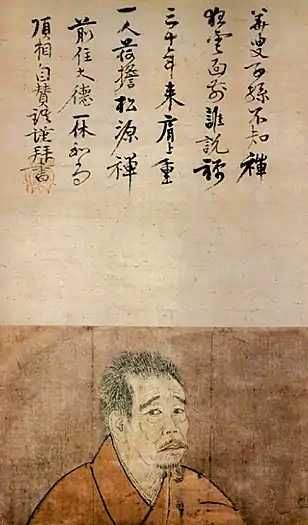 華叟子孫不知禪
狂雲面前誰説禪
三十年来肩上重
一人荷擔松源禪
前住大德一休和尚
頂相自賛拜書